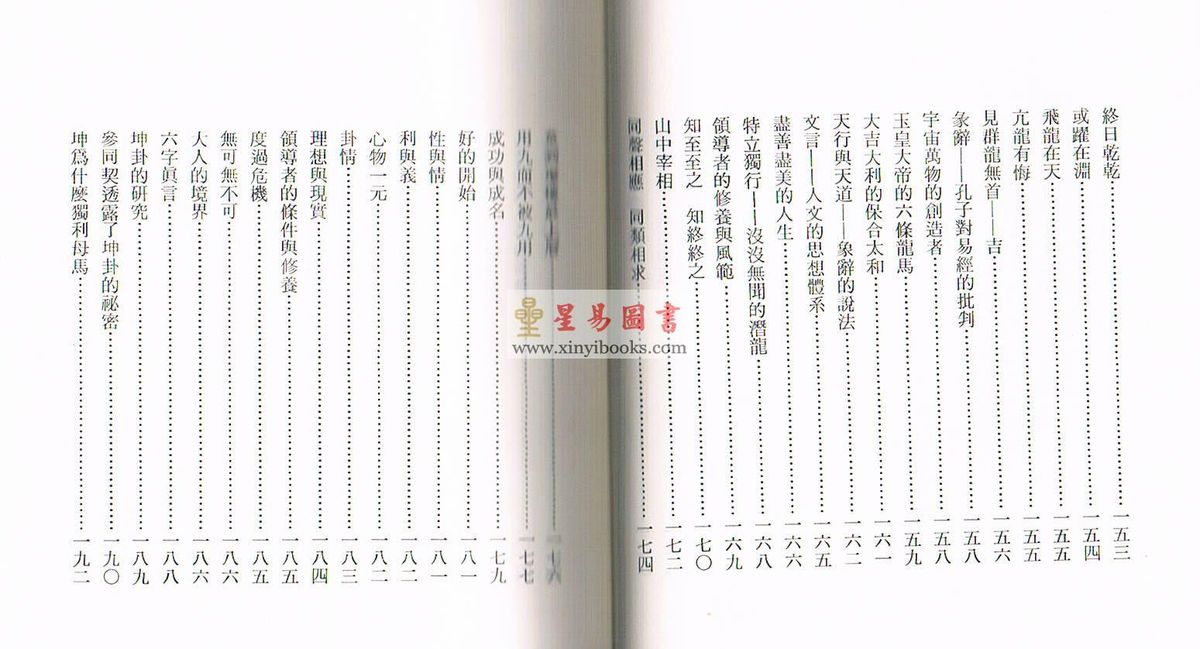 終日乾乾……一五三
或躍在淵……一五四
飛龍在天……一五五
亢龍有悔……一五五
見群龍無首——吉……一五六
彖辭——孔子對易經的批判……一五八
宇宙萬物的創造者……一五八
玉皇大帝的六條龍馬……一五九
大吉大利的保合太和……一六一
天行與天道——象辭的說法……一六二
文言——人文的思想體系……一六五
盡善盡美的人生……一六六
特立獨行——沒沒無聞的潛龍……一六八
領導者的修養與風範……一六九
知至至之　知終終之……一七〇
山中宰相……一七二
同聲相應　同類相求……一七四
一七六
用九而不被九用……一七七
成功與成名……一七九
好的開始……一八一
性與情……一八一
利與義……一八二
心物一元……一八二
卦情……一八三
理想與現實……一八四
領導者的條件與修養……一八五
度過危機……一八五
無可無不可……一八六
大人的境界……一八六
六字眞言……一八八
坤卦的研究……一八九
參同契透露了坤卦的祕密……一九〇
坤爲什麽獨利母馬……一九二
星易圖書
www.xinyibooks.com